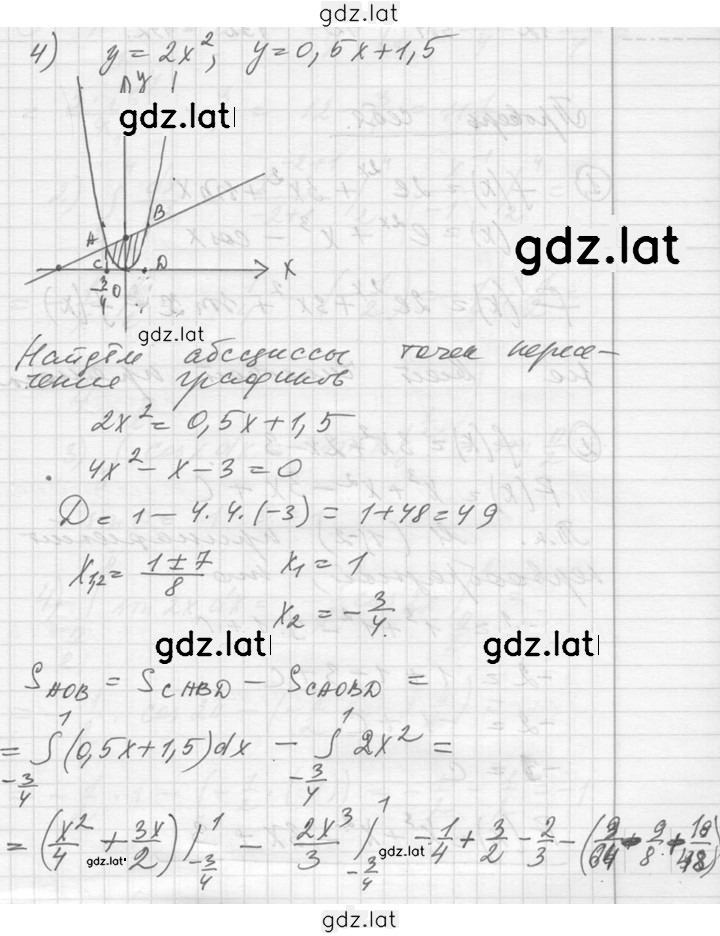 gdz.lat
4) y = 2x², y = 0,5x + 1,5
y
gdz.lat
B
A
gdz.lat
C D x
-3/4 0
gdz.lat
Найдём абсциссы точек пересе-
чение графиков
2x² = 0,5x + 1,5
4x² - x - 3 = 0
D = 1 - 4·4·(-3) = 1 + 48 = 49
x₁,₂ = (1 ± 7)/8 x₁ = 1
x₂ = -3/4
gdz.lat gdz.lat
S_AOB = S_CABD - S_CAOBD =
= ∫_{-3/4}^{1} (0,5x + 1,5)dx - ∫_{-3/4}^{1} 2x² =
= (x²/4 + 3x/2) |_{-3/4}^{1} - 2x³/3 |_{-3/4}^{1} - 1/4 + 3/2 - 2/3 - (9/64 + 9/8 + 18/48)
gdz.lat gdz.lat
gdz.lat